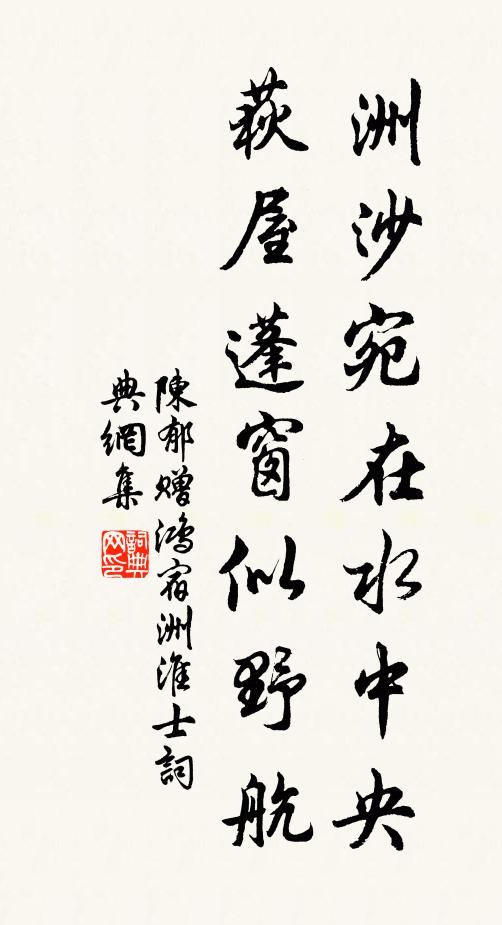 洲沙宛在水中央
荻屋蓬窗似野航
陳郁赠鴻宿洲淮士詞
典網集
詞典网印